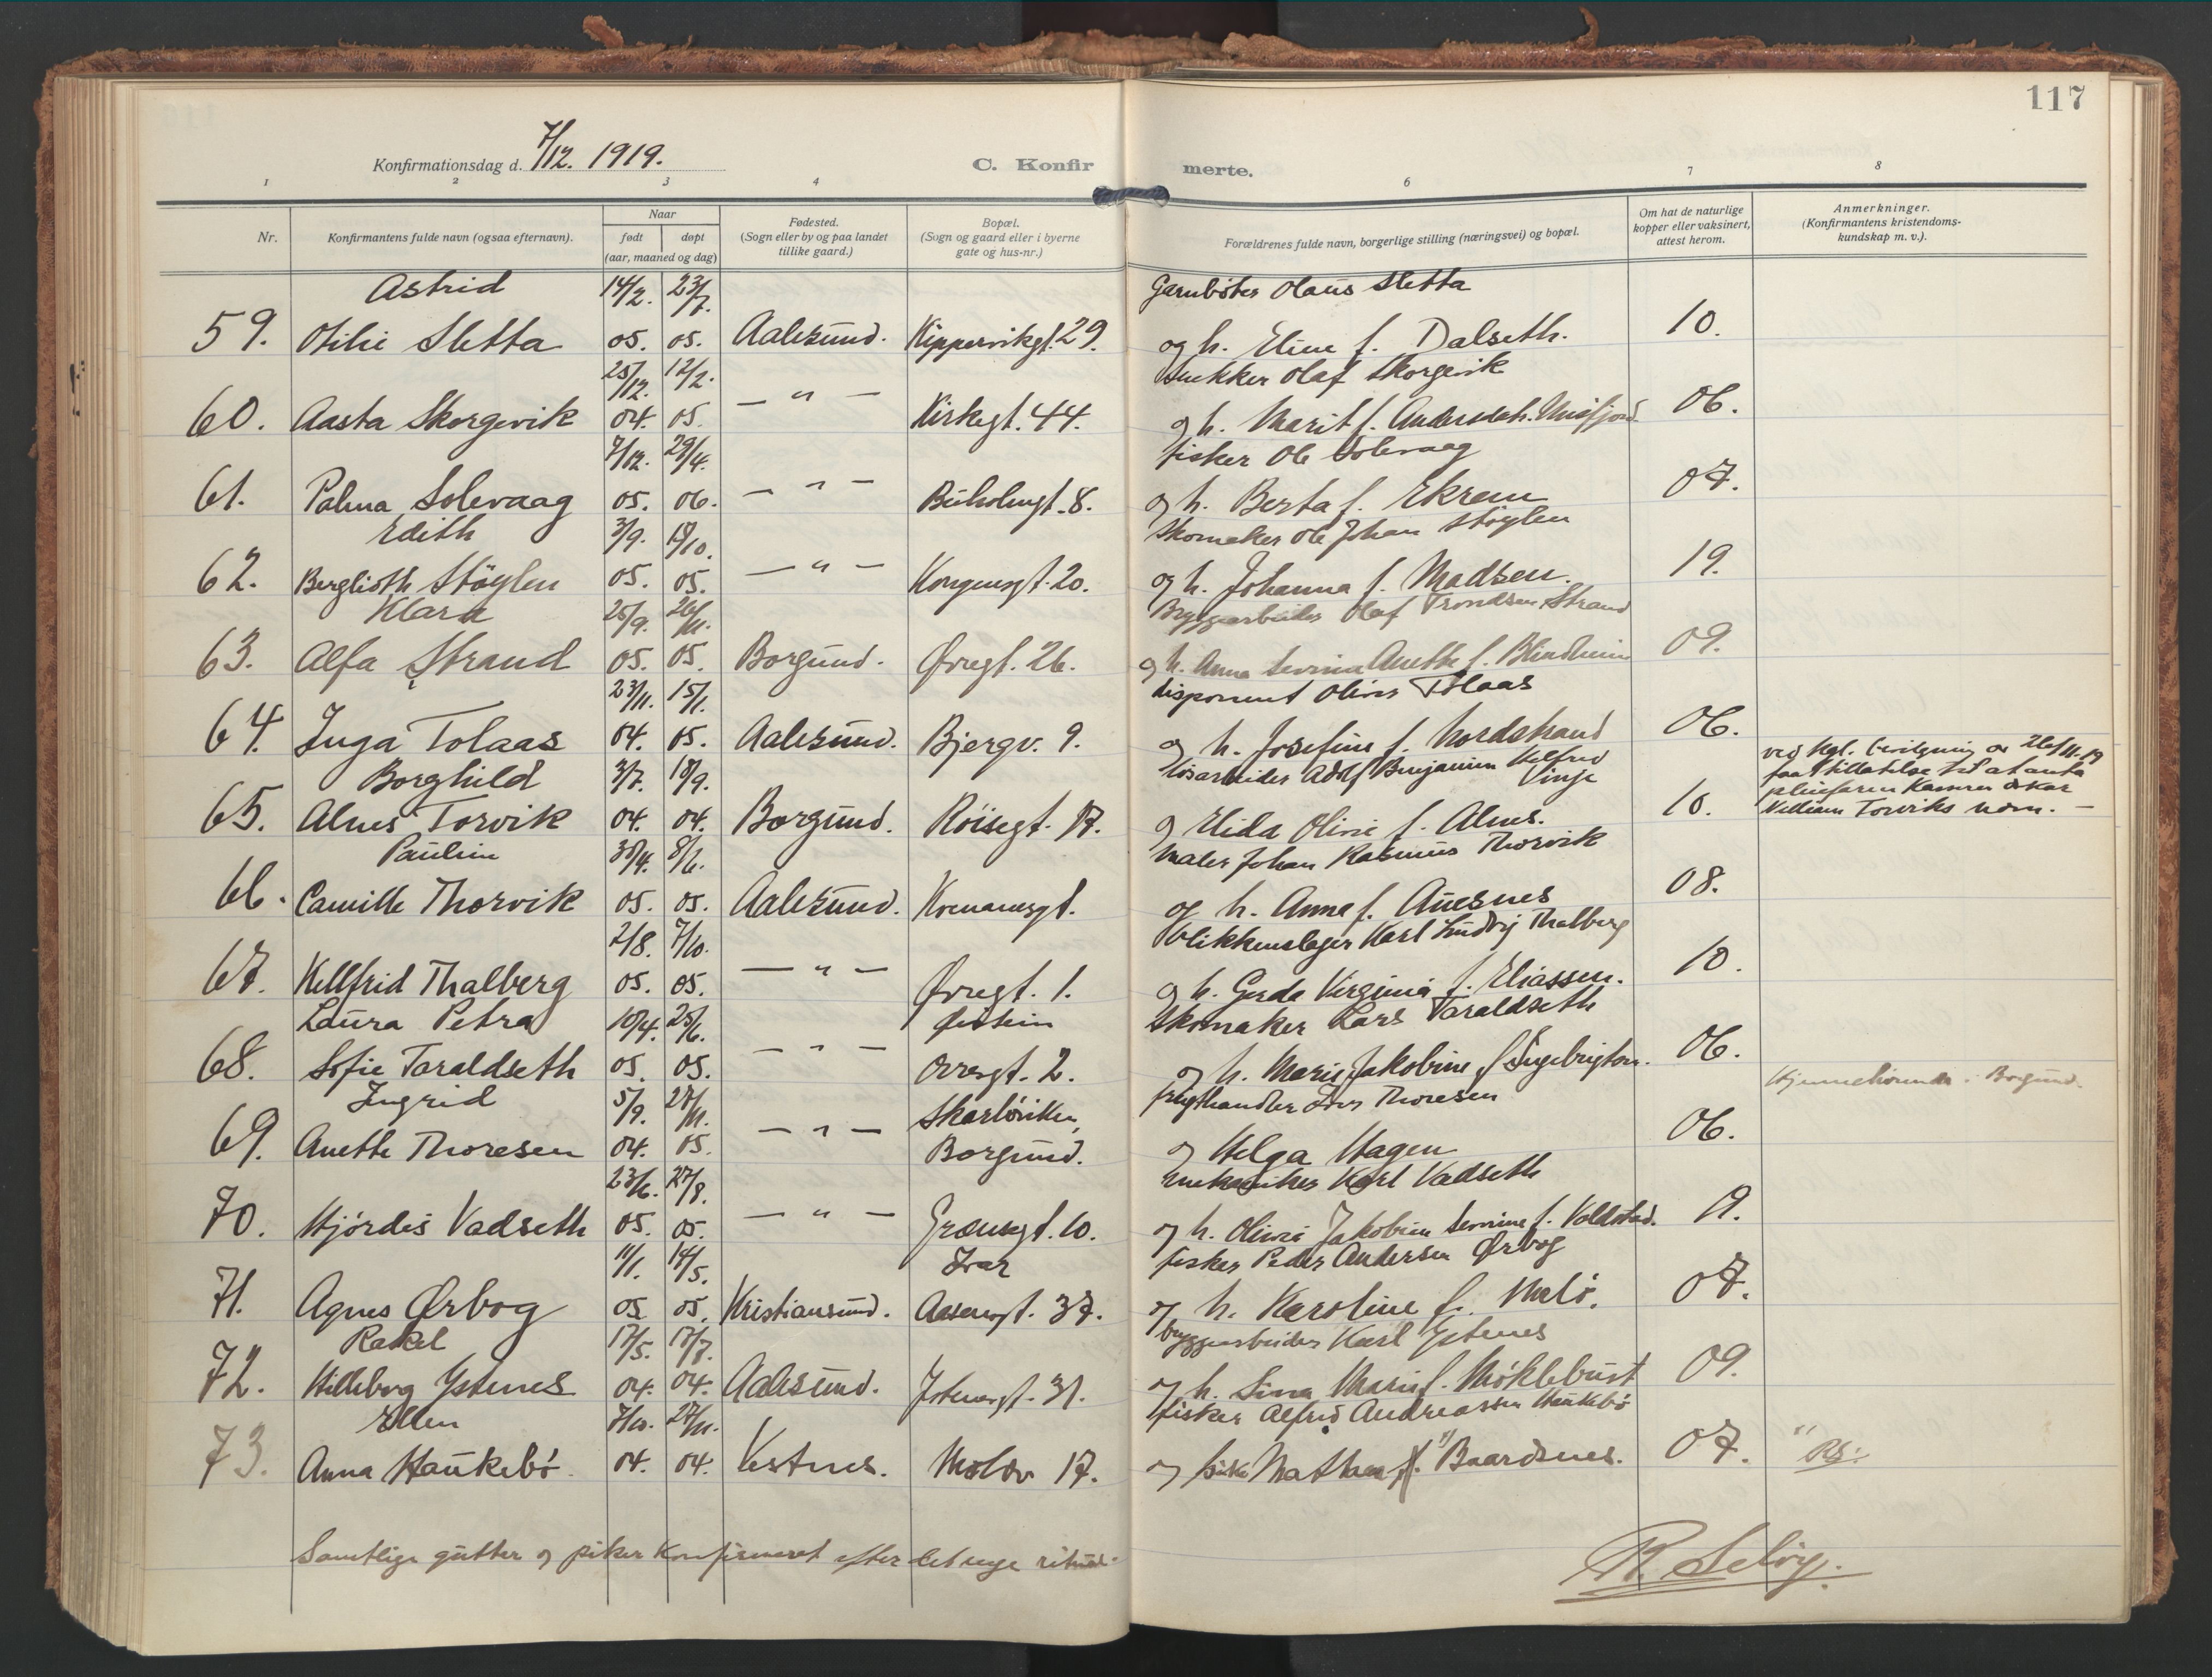 117
Konfirmationsdag d. 7/12. 1919.
C. Konfirmerte.
1 2 3 4 6 7 8
Nr.
Konfirmantens fulde navn (ogsaa efternavn).
Naar
født døpt
(aar, maaned og dag)
Fødested.
(Sogn eller by og paa landet
tillike gaard.)
Bopæl.
(Sogn og gaard eller i byerne
gate og hus-nr.)
Forældrenes fulde navn, borgerlige stilling (næringsvei) og bopæl.
Om hat de naturlige
kopper eller vaksinert,
attest herom.
Anmerkninger.
(Konfirmantens kristendoms-
kundskap m. v.).
Astrid 14/2. 23/7. Garnbøter Olaus Sletta
59. Otilie Sletta 05. 05. Aalesund. Kippervikgt. 29. og h. Eline f. Dalseth. 10.
25/12. 12/2. Snekker Olaf Skorgevik
60. Aasta Skorgevik 04. 05. — " — Kirkegt. 44. og h. Marit f. 06.
7/12. 29/4. fisker Ole Solevaag
61. Palma Solevaag 05. 06. — " — Buholmgt. 8. og h. Berta f. Ekrem 07.
Edith 3/9. /10. Skomaker Ole Johan Støylen
62. Berglioth Støylen 05. 05. — " — Kongensgt. 20. og h. Johanna f. Madsen. 19.
Klara 25/9. 26/11. Bryggearbeider Olaf Trondsen Strand
63. Alfa Strand 05. 05. Borgund. Øvregt. 26. og h. Anna Severina Anette f. Blindheim 09.
23/11. 15/1. disponent Oliver Tolaas
64. Inga Tolaas 04. 05. Aalesund. Bjergv. 9. og h. Josefine f. Nordstrand 06.
Borghild 3/7. 18/9. løsarbeider Adolf Benjamin Velfred Vinje
65. Alnes Torvik 04. 04. Borgund. Røisegt. 17. og Elida Olivie f. Alnes. 10.
ved kgl. bevilgning av 11.19
faat tillatelse til at anta
pleiefaren Oskar
Torviks navn. —
Paulin 30/4. 8/6. Maler Johan Rasmus Thorvik
66. Camilla Thorvik 05. 05. Aalesund. og h. Anna f. Auesnes 08.
2/8. 7/10. blikkenslager Karl Ludvig Thalberg
67. Kellfrid Thalberg 05. 05. — " — Øvregt. 1. og h. Gerda Virginia f. Eliassen. 10.
Laura Petra 10/4. 25/6. Øistein Skomaker Lars Taraldseth
68. Sofie Taraldseth 05. 05. — " — Orresgt. 2. og h. Marie Jakobine f. Ingebrigtsen. 06.
Ingrid 5/9. 27/11. frugthandler Thoresen
69. Anette Thoresen 04. 05. — " — Borgund. og Helga Hagen 06. Hjemmehørende i Borgund.
23/6. 27/8. mekaniker Karl Vadseth
70. Hjørdis Vadseth 05. 05. — " — Grensegt. 10. og h. Olivia Jakobine Severine f. 19.
11/1. 14/5. Ivar fisker Peder Andersen Ørbog
71. Agnes Ørbog 05. 05. Kristiansund. Aasensgt. 37. og h. Karoline f. Malø. 07.
Rakel 17/5. 17/7. bryggearbeider Karl Ystenes
72. Hilleborg Ystenes 04. 04. Aalesund. 31. og h. Sina Marie f. Møklebust 09.
Ellen 7/10. 27/11. fisker Alfred Andreassen Haukebø
73. Anna Haukebø 04. 04. Vestnes. Molov 17. og pike Mathea f. Baardsnes. 07. " RS:
Samtlige gutter og piker konfirmeret efter det nye ritual.
R. Seløy.